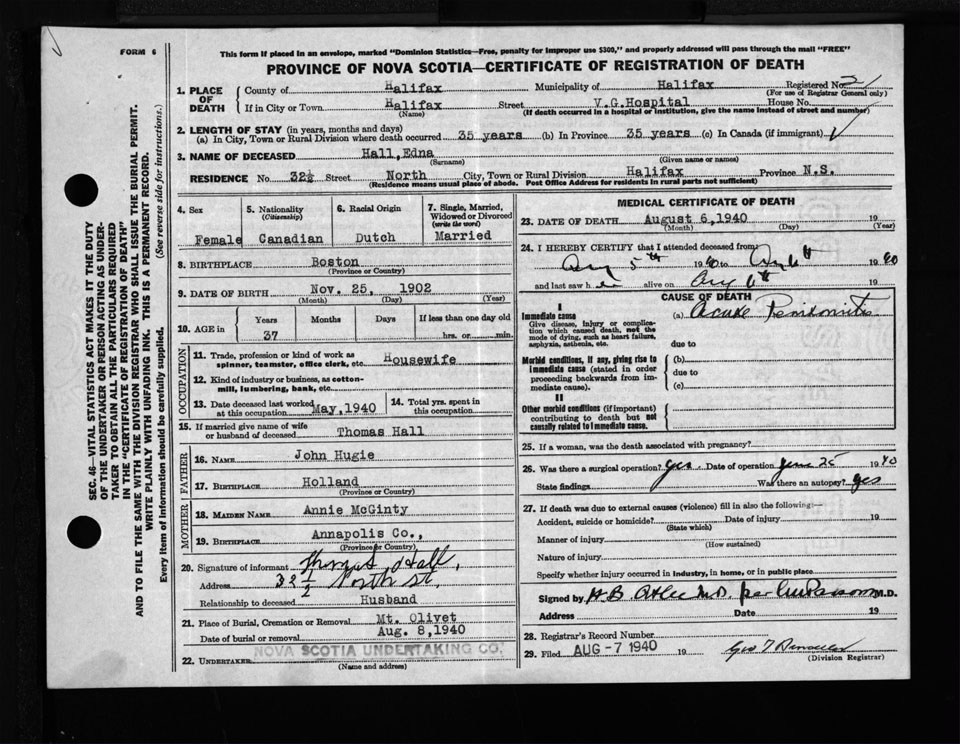 FORM 6
This form if placed in an envelope, marked "Dominion Statistics—Free, penalty for improper use $300," and properly addressed will pass through the mail "FREE"
PROVINCE OF NOVA SCOTIA—CERTIFICATE OF REGISTRATION OF DEATH
SEC. 46—VITAL STATISTICS ACT MAKES IT THE DUTY
OF THE UNDERTAKER OR PERSON ACTING AS UNDER-
TAKER TO OBTAIN ALL THE PARTICULARS REQUIRED
IN THE "CERTIFICATE OF REGISTRATION OF DEATH"
AND TO FILE THE SAME WITH THE DIVISION REGISTRAR WHO SHALL ISSUE THE BURIAL PERMIT.
WRITE PLAINLY WITH UNFADING INK. THIS IS A PERMANENT RECORD.
Every item of Information should be carefully supplied. (See reverse side for instructions.)
1. PLACE OF DEATH
County of Halifax Municipality of Halifax Registered No. 21
(For use of Registrar General only)
If in City or Town Halifax Street V.G.Hospital House No.
(Name) (If death occurred in a hospital or institution, give the name instead of street and number)
2. LENGTH OF STAY (in years, months and days)
(a) In City, Town or Rural Division where death occurred 35 years (b) In Province 35 years (c) In Canada (if immigrant)
3. NAME OF DECEASED Hall, Edna
(Surname) (Given name or names)
RESIDENCE No. 32½ Street North City, Town or Rural Division Halifax Province N.S.
(Residence means usual place of abode. Post Office Address for residents in rural parts not sufficient)
4. Sex 5. Nationality (Citizenship) 6. Racial Origin 7. Single, Married, Widowed or Divorced (write the word)
Female Canadian Dutch Married
8. BIRTHPLACE Boston
(Province or Country)
9. DATE OF BIRTH Nov. 25, 1902
(Month) (Day) (Year)
10. AGE in Years Months Days If less than one day old
37 hrs. or min.
OCCUPATION
11. Trade, profession or kind of work as
spinner, teamster, office clerk, etc. Housewife
12. Kind of industry or business, as cotton-
mill, lumbering, bank, etc.
13. Date deceased last worked at this occupation May, 1940 14. Total yrs. spent in this occupation
15. If married give name of wife
or husband of deceased Thomas Hall
FATHER
16. NAME John Hugie
17. BIRTHPLACE Holland
(Province or Country)
MOTHER
18. MAIDEN NAME Annie McGinty
19. BIRTHPLACE Annapolis Co.,
(Province or Country)
20. Signature of informant Thomas Hall,
Address 32 1/2 North St.
Relationship to deceased Husband
21. Place of Burial, Cremation or Removal Mt. Olivet
Date of burial or removal Aug. 8, 1940
22. UNDERTAKER NOVA SCOTIA UNDERTAKING CO.
(Name and address)
MEDICAL CERTIFICATE OF DEATH
23. DATE OF DEATH August 6, 1940 19
(Month) (Day) (Year)
24. I HEREBY CERTIFY that I attended deceased from
Aug 5th 1940 to Aug 6th 1940
and last saw her alive on Aug 6th 19
CAUSE OF DEATH
I
Immediate cause (a) Acute Peritonitis
Give disease, injury or complica-
tion which caused death, not the
mode of dying, such as heart failure,
asphyxia, asthenia, etc. due to
Morbid conditions, if any, giving rise to (b)
immediate cause (stated in order
proceeding backwards from im- due to
mediate cause). (c)
II
Other morbid conditions (if important)
contributing to death but not
causally related to immediate cause.
25. If a woman, was the death associated with pregnancy?
26. Was there a surgical operation? yes. Date of operation June 25 1940
State findings Was there an autopsy? yes
27. If death was due to external causes (violence) fill in also the following:—
Accident, suicide or homicide? Date of injury 19
(State which)
Manner of injury
(How sustained)
Nature of injury
Specify whether injury occurred in industry, in home, or in public place
Signed by H B Atlee M.D. per M.D.
Address Date 19
28. Registrar's Record Number
29. Filed AUG -7 1940 19
(Division Registrar)